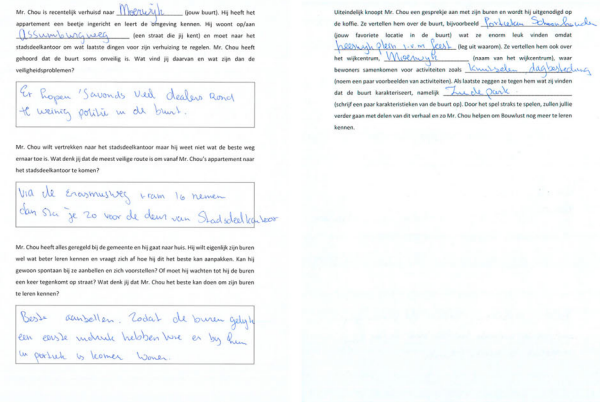 Mr. Chou is recentelijk verhuisd naar Moerwijk (jouw buurt). Hij heeft het
appartement een beetje ingericht en leert de omgeving kennen. Hij woont op/aan
Assumburgweg (een straat die jij kent) en moet naar het
stadsdeelkantoor om wat laatste dingen voor zijn verhuizing te regelen. Mr. Chou heeft
gehoord dat de buurt soms onveilig is. Wat vind jij daarvan en wat zijn dan de
veiligheidsproblemen?
Er lopen 's avonds veel dealers rond
te weinig politie in de buurt.
Mr. Chou wilt vertrekken naar het stadsdeelkantoor maar hij weet niet wat de beste weg
ernaar toe is. Wat denk jij dat de meest veilige route is om vanaf Mr. Chou's appartement naar
het stadsdeelkantoor te komen?
Via de Erasmusweg tram 16 nemen
dan sta je zo voor de deur van Stadsdeelkantoor
Mr. Chou heeft alles geregeld bij de gemeente en hij gaat naar huis. Hij wilt eigenlijk zijn buren
wel wat beter leren kennen en vraagt zich af hoe hij dit het beste kan aanpakken. Kan hij
gewoon spontaan bij ze aanbellen en zich voorstellen? Of moet hij wachten tot hij de buren
een keer tegenkomt op straat? Wat denk jij dat Mr. Chou het beste kan doen om zijn buren
te leren kennen?
Beste aanbellen. Zodat de buren gelijk
een eerste indruk hebben wie er bij hen
in portiek is komen wonen.
Uiteindelijk knoopt Mr. Chou een gesprekje aan met zijn buren en wordt hij uitgenodigd op
de koffie. Ze vertellen hem over de buurt, bijvoorbeeld
(jouw favoriete locatie in de buurt) wat ze enorm leuk vinden omdat
(leg uit waarom). Ze vertellen hem ook over
het wijkcentrum, (naam van het wijkcentrum), waar
bewoners samenkomen voor activiteiten zoals knutselen dagbesteding
(noem een paar voorbeelden van activiteiten). Als laatste zeggen ze tegen hem wat zij vinden
dat de buurt karakteriseert, namelijk Zuiderpark
(schrijf een paar karakteristieken van de buurt op). Door het spel straks te spelen, zullen jullie
verder gaan met delen van dit verhaal en zo Mr. Chou helpen om Bouwlust nog meer te leren
kennen.